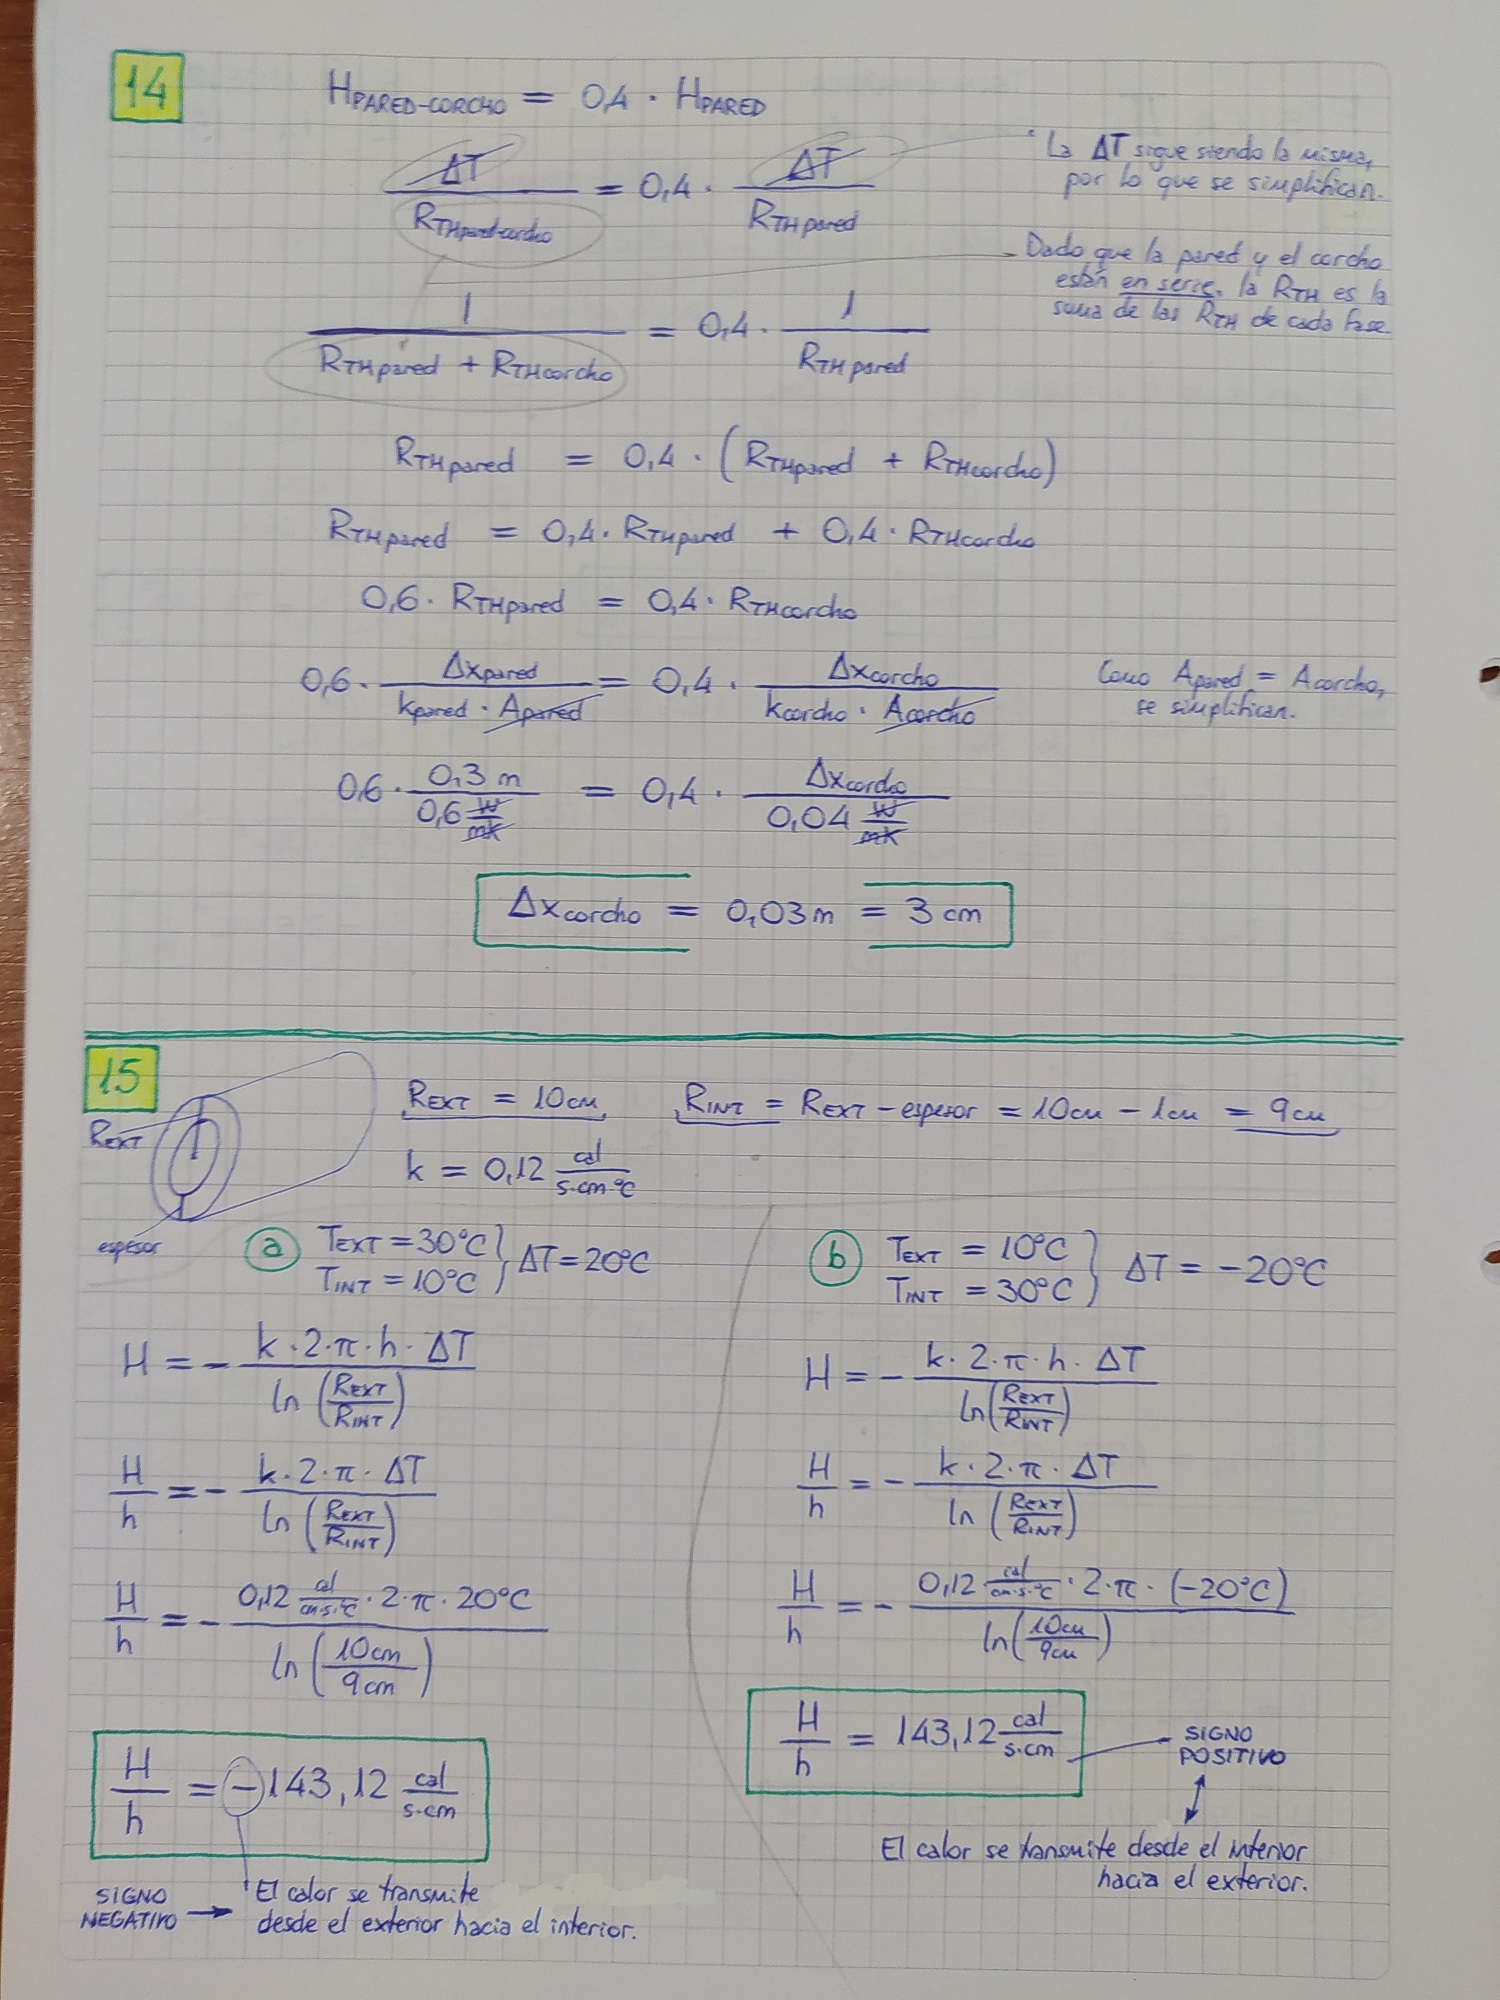 14
H_PARED-CORCHO = 0,4 · H_PARED
ΔT / R_TH pared-corcho = 0,4 · ΔT / R_TH pared
La ΔT sigue siendo la misma,
por lo que se simplifican.
Dado que la pared y el corcho
están en serie, la R_TH es la
suma de las R_TH de cada fase
1 / (R_TH pared + R_TH corcho) = 0,4 · 1 / R_TH pared
R_TH pared = 0,4 · (R_TH pared + R_TH corcho)
R_TH pared = 0,4 · R_TH pared + 0,4 · R_TH corcho
0,6 · R_TH pared = 0,4 · R_TH corcho
0,6 · Δx pared / (k pared · A pared) = 0,4 · Δx corcho / (k corcho · A corcho)
Como A pared = A corcho,
se simplifican.
0,6 · 0,3 m / 0,6 W/mK = 0,4 · Δx corcho / 0,04 W/mK
Δx corcho = 0,03 m = 3 cm
15
R_EXT
espesor
R_EXT = 10 cm
R_INT = R_EXT - espesor = 10 cm - 1 cm = 9 cm
k = 0,12 cal / s·cm·ºC
a
T_EXT = 30ºC
T_INT = 10ºC } ΔT = 20ºC
H = - k · 2 · π · h · ΔT / ln (R_EXT / R_INT)
H/h = - k · 2 · π · ΔT / ln (R_EXT / R_INT)
H/h = - 0,12 cal/cm·s·ºC · 2 · π · 20ºC / ln (10 cm / 9 cm)
H/h = - 143,12 cal / s·cm
SIGNO
NEGATIVO → El calor se transmite
desde el exterior hacia el interior.
b
T_EXT = 10ºC
T_INT = 30ºC } ΔT = -20ºC
H = - k · 2 · π · h · ΔT / ln (R_EXT / R_INT)
H/h = - k · 2 · π · ΔT / ln (R_EXT / R_INT)
H/h = - 0,12 cal/cm·s·ºC · 2 · π · (-20ºC) / ln (10 cm / 9 cm)
H/h = 143,12 cal / s·cm
SIGNO
POSITIVO
El calor se transmite desde el interior
hacia el exterior.